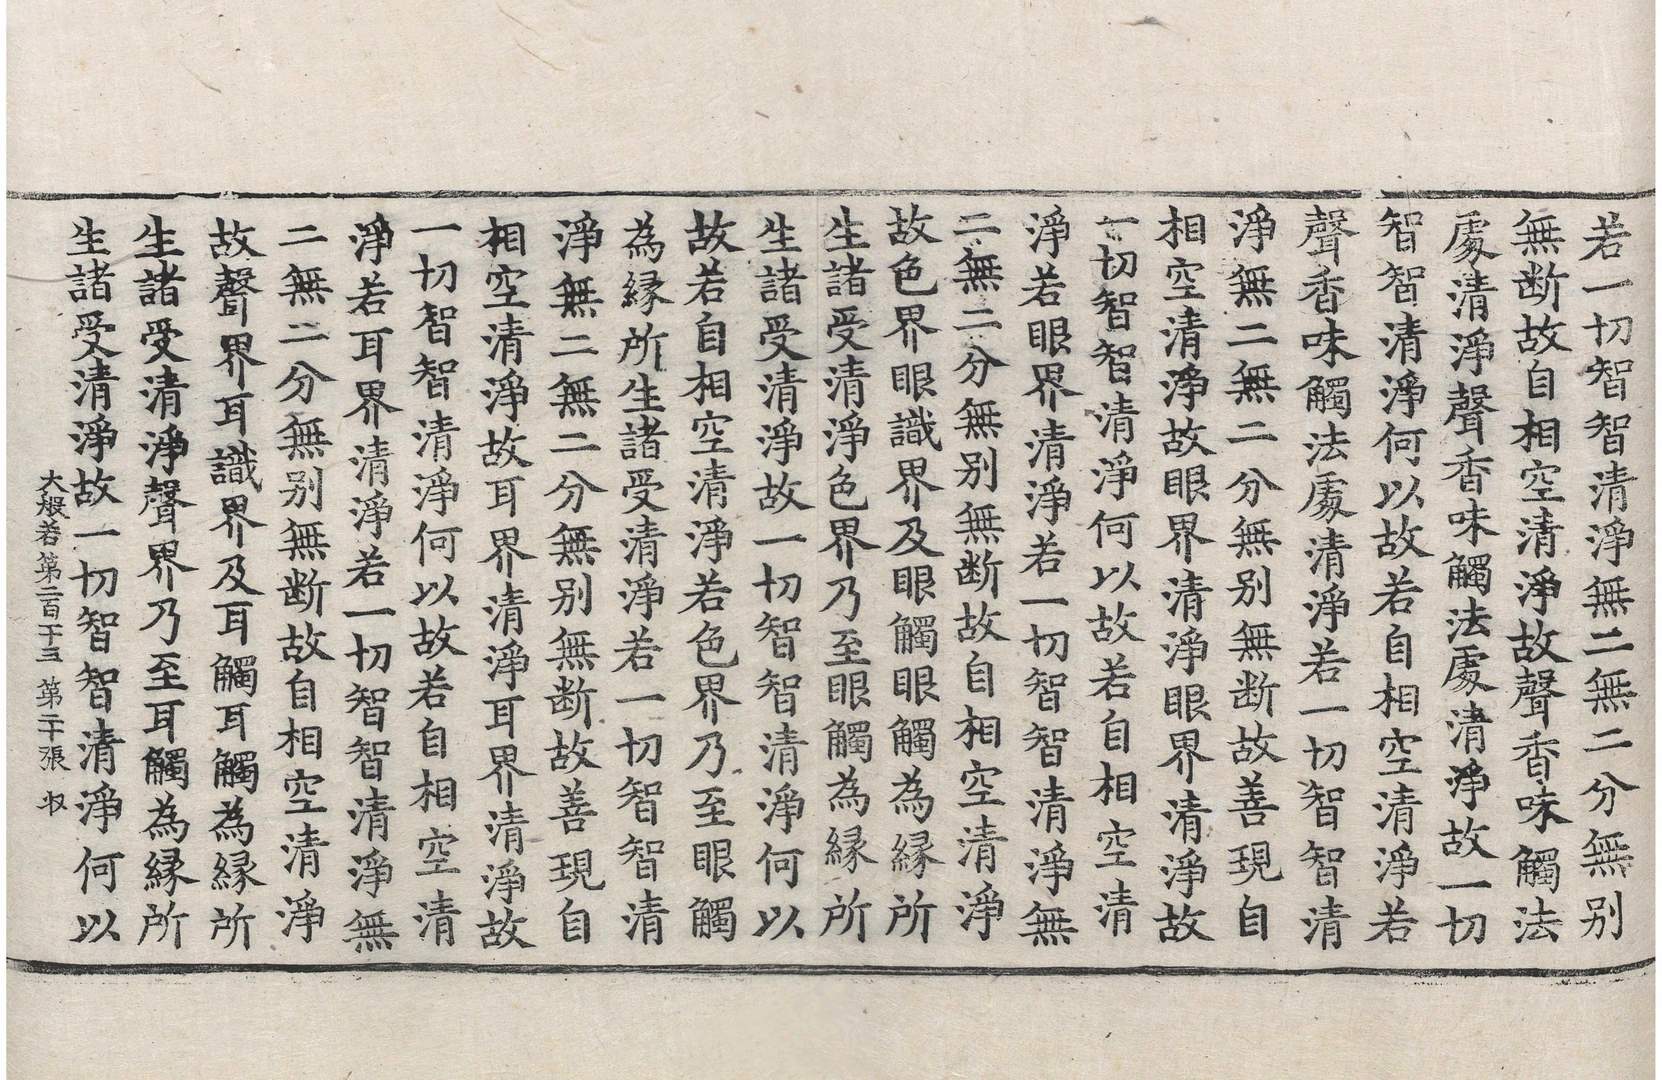 若一切智智清淨無二無二分無別
無断故自相空清淨故聲香味觸法
處清淨聲香味觸法處清淨故一切
智智清淨何以故若自相空清淨若
聲香味觸法處清淨若一切智智清
淨無二無二分無別無断故善現自
相空清淨故眼界清淨眼界清淨故
一切智智清淨何以故若自相空清
淨若眼界清淨若一切智智清淨無
二無二分無別無断故自相空清淨
故色界眼識界及眼觸眼觸為縁所
生諸受清淨色界乃至眼觸為縁所
生諸受清淨故一切智智清淨何以
故若自相空清淨若色界乃至眼觸
為縁所生諸受清淨若一切智智清
淨無二無二分無別無断故善現自
相空清淨故耳界清淨耳界清淨故
一切智智清淨何以故若自相空清
淨若耳界清淨若一切智智清淨無
二無二分無別無断故自相空清淨
故聲界耳識界及耳觸耳觸為縁所
生諸受清淨聲界乃至耳觸為縁所
生諸受清淨故一切智智清淨何以
大般若第二百十三 第二十張 収